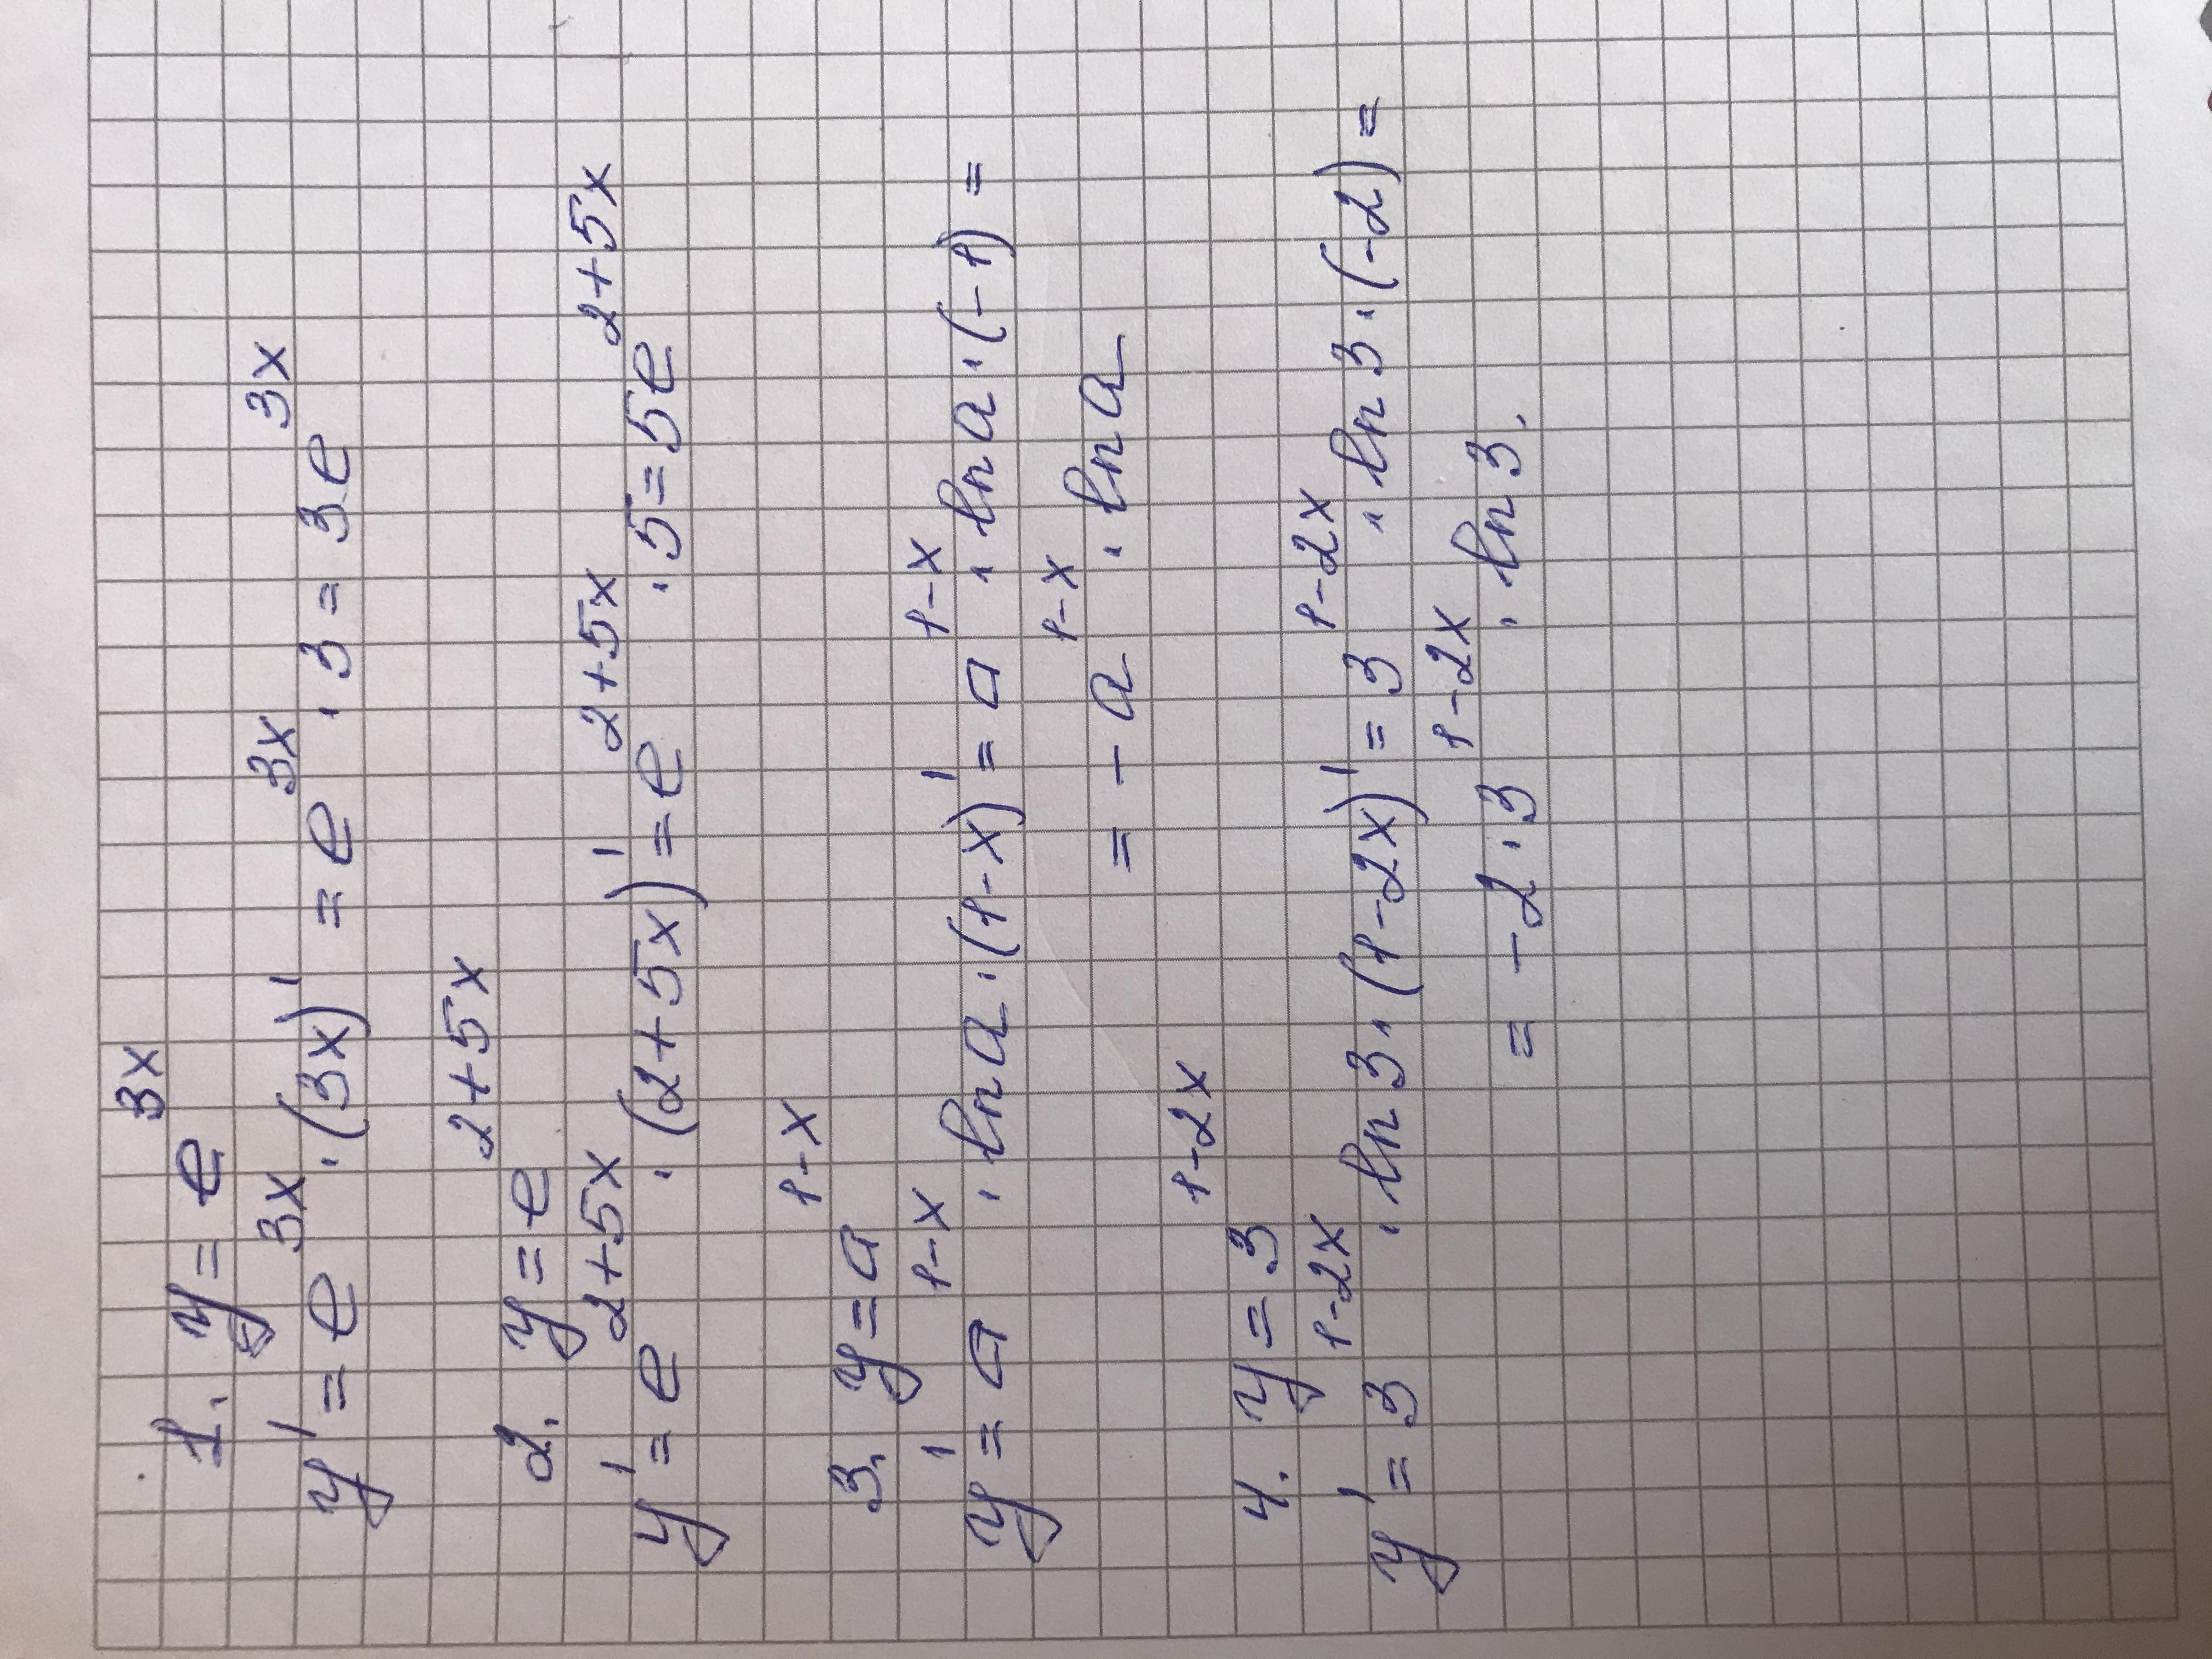 1. y = e^{3x}
y' = e^{3x} · (3x)' = e^{3x} · 3 = 3e^{3x}
2. y = e^{2+5x}
y' = e^{2+5x} · (2+5x)' = e^{2+5x} · 5 = 5e^{2+5x}
3. y = a^{1-x}
y' = a^{1-x} · ln a · (1-x)' = a^{1-x} · ln a · (-1) =
= - a^{1-x} · ln a
4. y = 3^{1-2x}
y' = 3^{1-2x} · ln 3 · (1-2x)' = 3^{1-2x} · ln 3 · (-2) =
= -2 · 3^{1-2x} · ln 3.